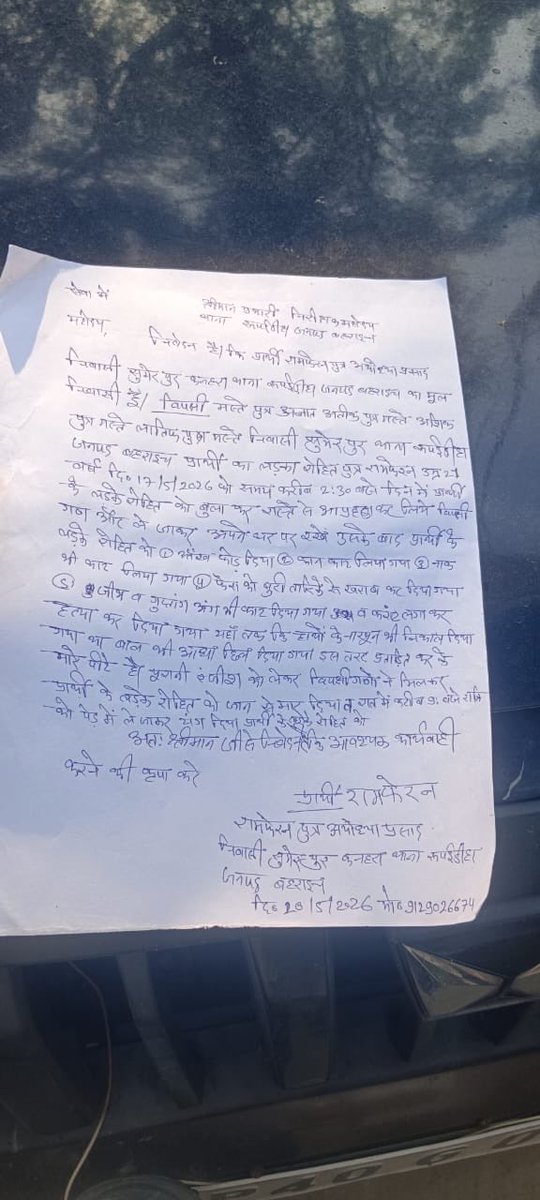 सेवा में
श्रीमान प्रभारी निरीक्षक महोदय
थाना रूपईडीहा जनपद बहराइच
महोदय,
निवेदन है कि प्रार्थी रामफेरन पुत्र अयोध्या प्रसाद
निवासी सुमेरपुर कनहरा थाना रूपईडीहा जनपद बहराइच का मूल
निवासी है। विपक्षी मस्ते पुत्र अज्ञात अतीक पुत्र मस्ते आशिक
पुत्र मस्ते लातिक पुत्र मस्ते निवासी सुमेरपुर थाना रूपईडीहा
जनपद बहराइच प्रार्थी का लड़का रोहित पुत्र रामफेरन उम्र 21
वर्ष दि० 17/5/2026 को समय करीब 2:30 बजे दिन में प्रार्थी
के लड़के रोहित को बुला कर रास्ते से कर लिये विपक्षी
गण और ले जाकर अपने घर पर रखे उसके बाद प्रार्थी के
लड़के रोहित को ① आंख फोड़ दिया ② कान काट लिया गया ③ नाक
भी काट लिया गया ④ फेस को छुरी से खराब कर दिया गया
⑤ जीभ व गुप्तांग अंग भी काट दिया गया व करंट लगा कर
हत्या कर दिया गया यहाँ तक कि हाथों के नाखून भी निकाल दिया
गया था बाल भी आधा छिल दिया गया इस तरह प्रताड़ित कर के
मारे पीटे है। पुरानी रंजीश को लेकर विपक्षीगणों ने मिलकर
प्रार्थी के लड़के रोहित को जान से मार दिया व रात में करीब 9 बजे रात्रि
को पेड़ में ले जाकर टांग दिया प्रार्थी के लड़के रोहित को
अतः श्रीमान जी से निवेदन है कि आवश्यक कार्यवाही
करने की कृपा करे
प्रार्थी रामफेरन
रामफेरन पुत्र अयोध्या प्रसाद
निवासी सुमेरपुर कनहरा थाना रूपईडीहा
जनपद बहराइच
दि० 20/5/2026 मो० 9129026674